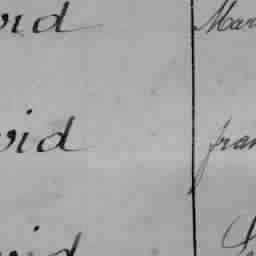 vid Mar
vid fran
vid